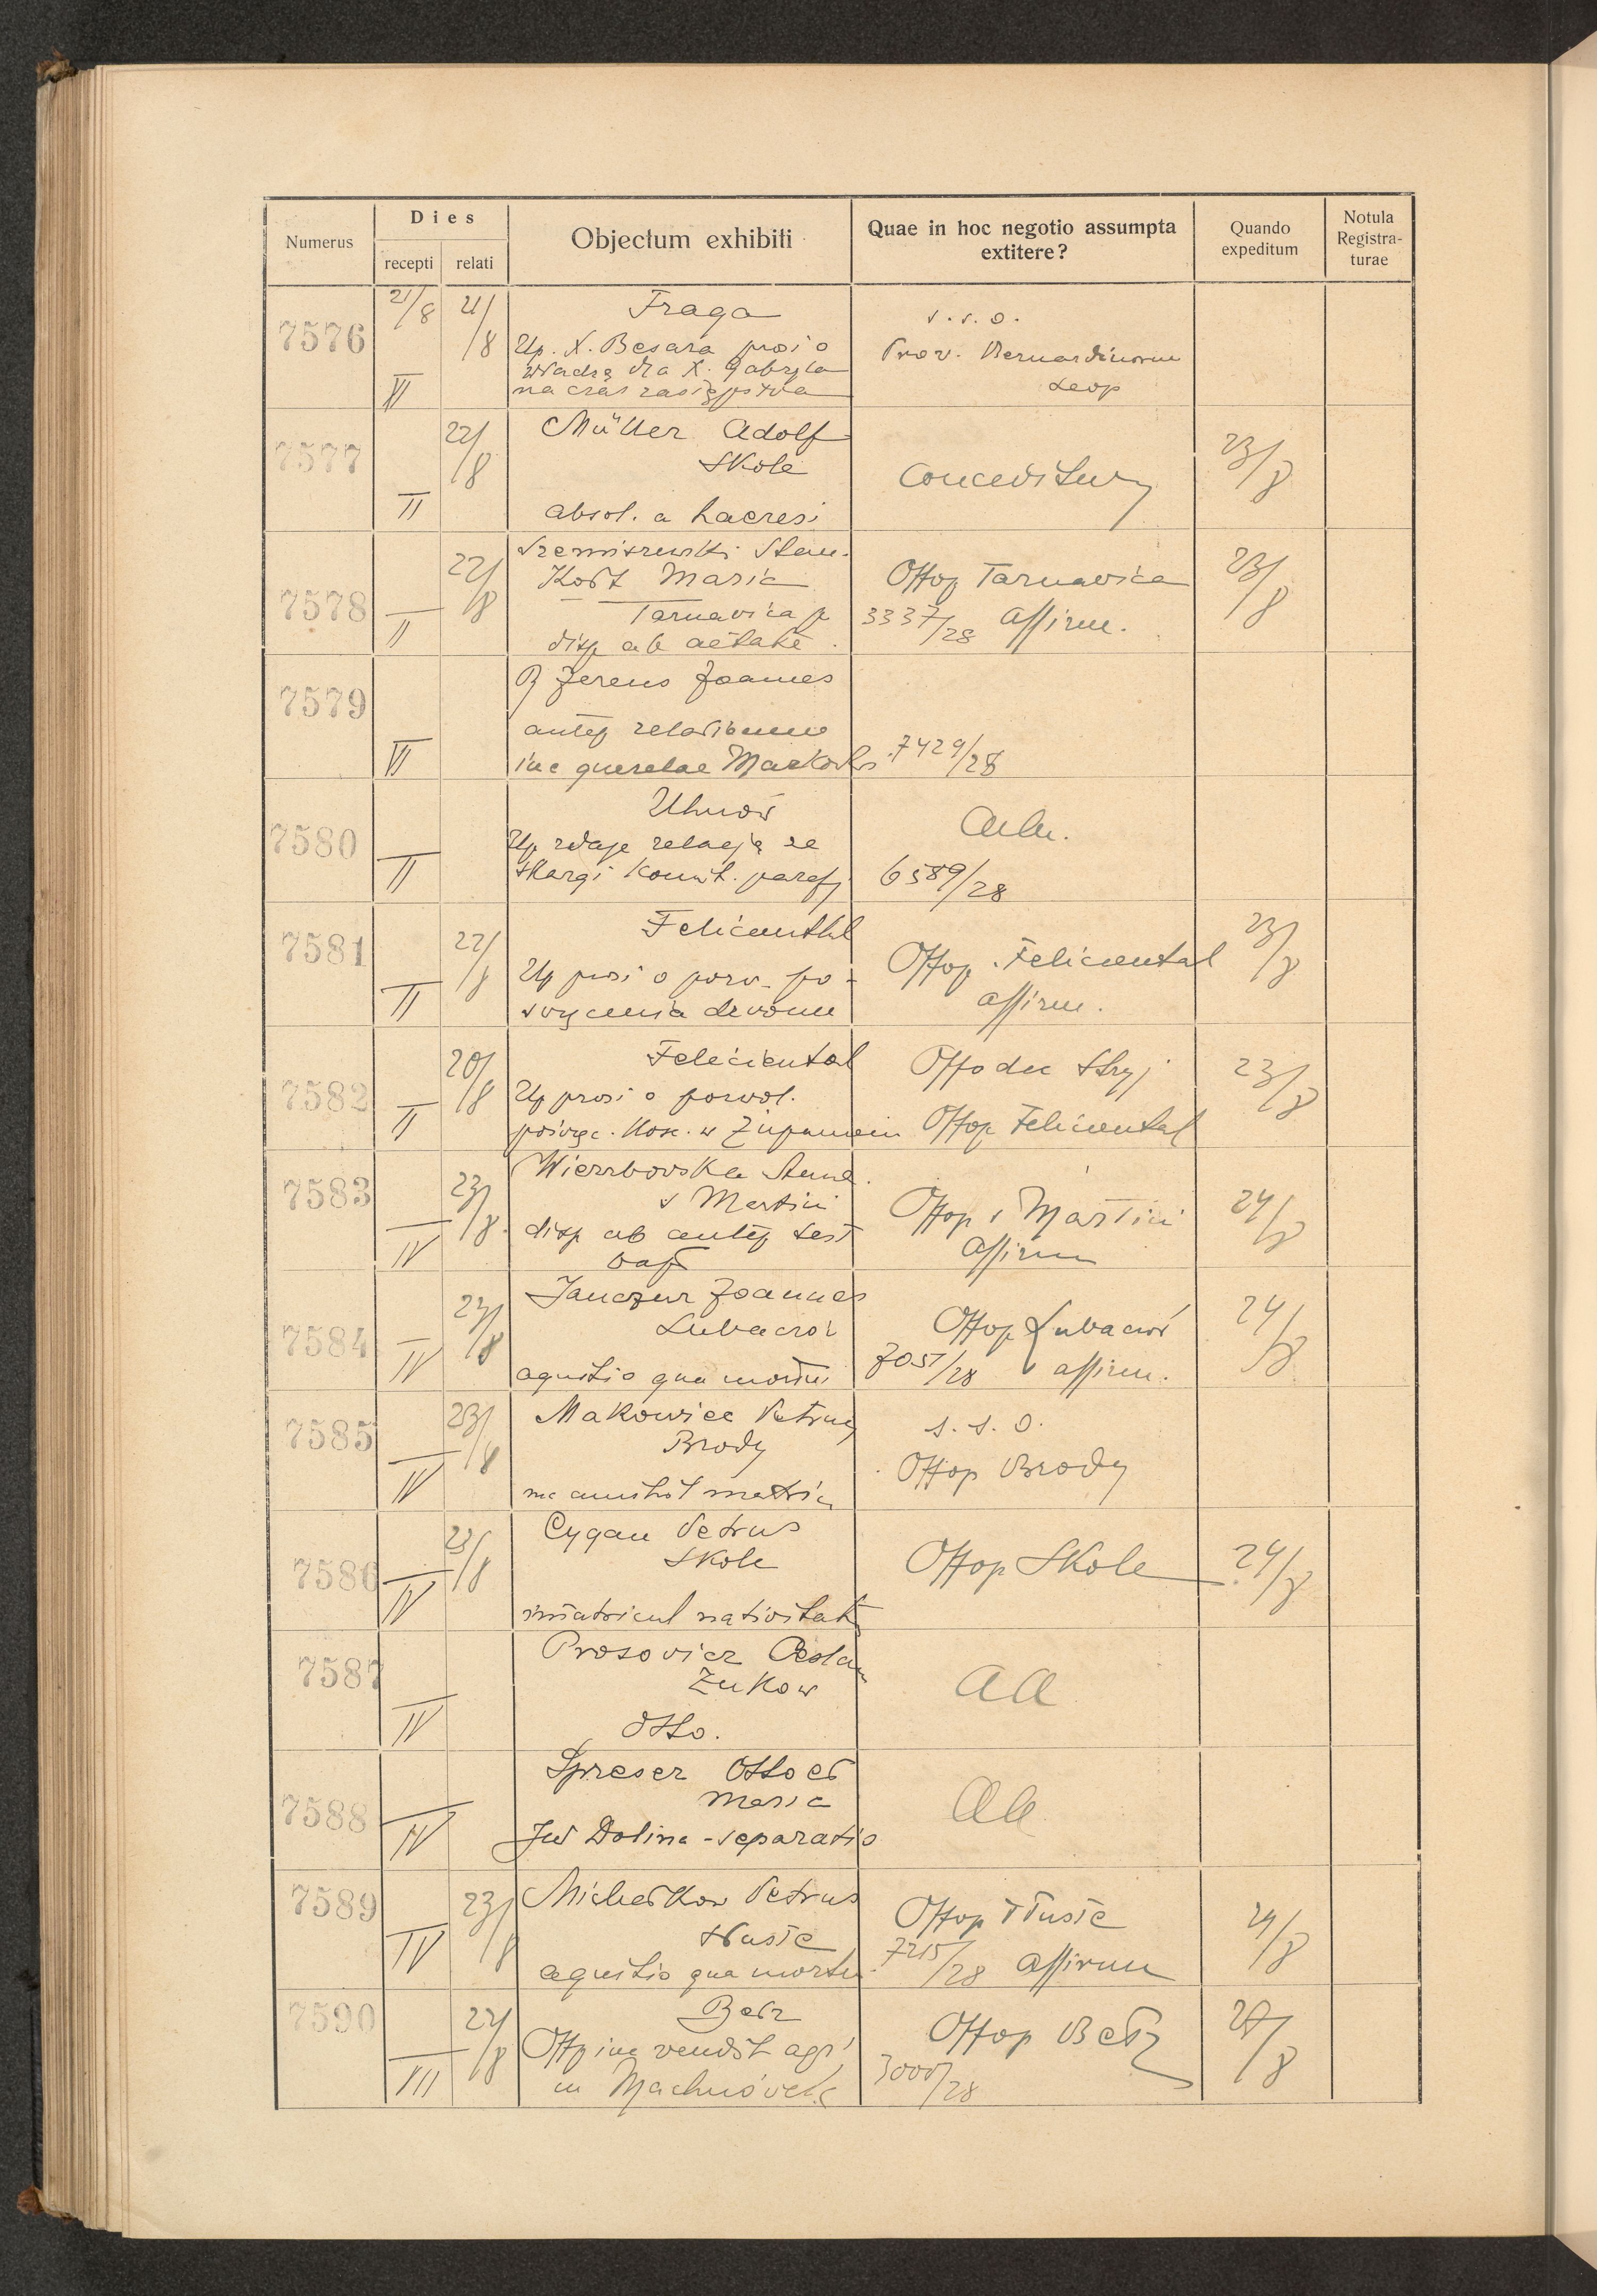 Numerus
Dies
recepti
relati
Objectum exhibiti
Quae in hoc negotio assumpta extitere?
Quando expeditum
Notula Registra-turae
7576
21/8
21/8
VI
Fraga
Up. X. Besara prosi o
władzę dla X. Gabryla
na czas zastępstwa
s. s. o.
Prov. Bernardinorum
Leop
7577
22/8
II
Müller Adolf
Skole
absol. a haeresi
conceditur
23/8
7578
22/8
II
Stan.
Maria
Tarnavica p
disp ab aetate
Offop Tarnavica
3337/28 affirm.
23/8
7579
VI
Joannes
antep relationem
inc querelae
7429/28
7580
II
Uhnów
Up zdaje relację ze
skargi komit. parafj
6589/28
7581
22/8
II
Felicienthl
Up prosi o
dzwonu
Offop. Feliciental
affirm.
23/8
7582
20/8
II
Feliciental
Up prosi o pozwol.
poświęc. Kośc. w
Offo dec Stryj
Offop Feliciental
23/8
7583
23/8
IV
Wierzbovska Anna
s Martini
disp ab antep test
bapt
Offop s Martini
affirm
24/8
7584
23/8
IV
Janczur Joannes
Lubaczów
agnitio qua mortui
Offop Lubaczów
7051/28 affirm.
24/8
7585
23/8
IV
Makowiec Petrus
Brody
matric
s. s. o.
Offop Brody
7586
23/8
IV
Cygan Petrus
Skole
immatricul nativitatis
Offop Skole
24/8
7587
IV
Prosovicz
Zukow
dtto.
aa
7588
IV
Spreser Otto et
Maria
Dolina - separatio
aa
7589
23/8
IV
Petrus
Tłuste
agnitio qua mortui
Offop Tłuste
7215/28 affirm
24/8
7590
22/8
III
Bełz
Offp inc vendit agri
in Machnówek
Offop Bełz
/28